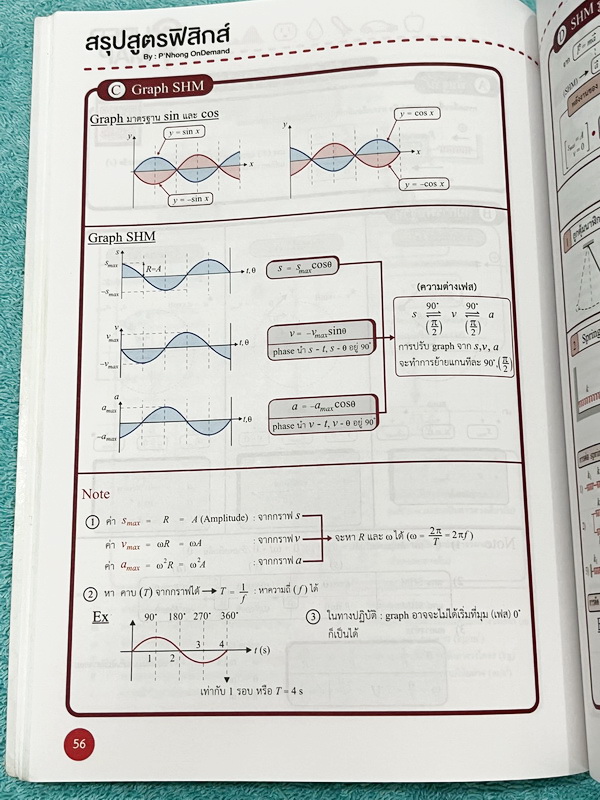 สรุปสูตรฟิสิกส์
By : P'Nhong OnDemand
C Graph SHM
Graph มาตรฐาน sin และ cos
y
y = sin x
x
y = –sin x
y
y = cos x
x
y = –cos x
Graph SHM
s
s_max
R=A
–s_max
t, θ
s = s_max cosθ
v
v_max
–v_max
t, θ
v = –v_max sinθ
phase นำ s - t, s - θ อยู่ 90°
a
a_max
–a_max
t,θ
a = –a_max cosθ
phase นำ v - t, v - θ อยู่ 90°
(ความต่างเฟส)
90° 90°
s ⇌ v ⇌ a
(π/2) (π/2)
การปรับ graph จาก s, v, a
จะทำการย้ายแกนทีละ 90°, (π/2)
Note
① ค่า s_max = R = A (Amplitude) : จากกราฟ s
ค่า v_max = ωR = ωA : จากกราฟ v
จะหา R และ ω ได้ (ω = 2π/T = 2πf)
ค่า a_max = ω²R = ω²A : จากกราฟ a
② หา คาบ (T) จากกราฟได้ → T = 1/f : หาความถี่ (f) ได้
Ex
90° 180° 270° 360°
1 2 3 4
t (s)
เท่ากับ 1 รอบ หรือ T = 4 s
③ ในทางปฏิบัติ : graph อาจจะไม่ได้เริ่มที่มุม (เฟส) 0°
ก็เป็นได้
56
D SHM
(SHM)
1
2 Spring